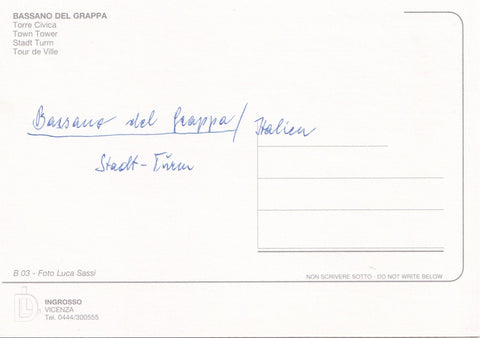 BASSANO DEL GRAPPA
Torre Civica
Town Tower
Stadt Turm
Tour de Ville
Bassano del Grappa / Italien
Stadt-Turm
B 03 - Foto Luca Sassi
NON SCRIVERE SOTTO - DO NOT WRITE BELOW
INGROSSO
VICENZA
Tel. 0444/300555